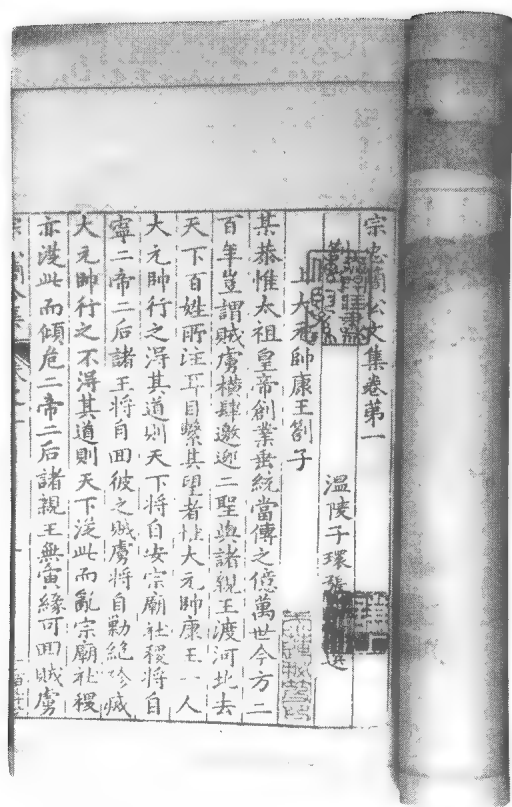 宗忠簡公文集卷第一
溫陵子環張 選
上大元帥康王劄子
某恭惟太祖皇帝創業垂統當傳之億萬世今方二
百年豈謂賊虜橫肆邀迎二聖與諸親王渡河北去
天下百姓所注耳目繫其望者惟大元帥康王一人
大元帥行之得其道則天下將自安宗廟社稷將自
寧二帝二后諸王將自回彼之賊虜將自勦絕殄滅
大元帥行之不得其道則天下從此而亂宗廟社稷
亦從此而傾危二帝二后諸親王無寅緣可回賊虜